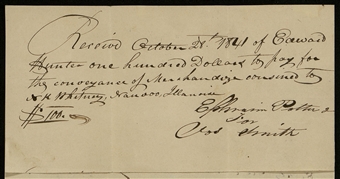 Received October 28th 1841 of Edward
Hunter one hundred Dollars to pay for
the conveyance of Merchandize consined to
N. K. Whitney, Nauvoo, Illanois
$100.
Ephraim Potter
For
Jos Smith